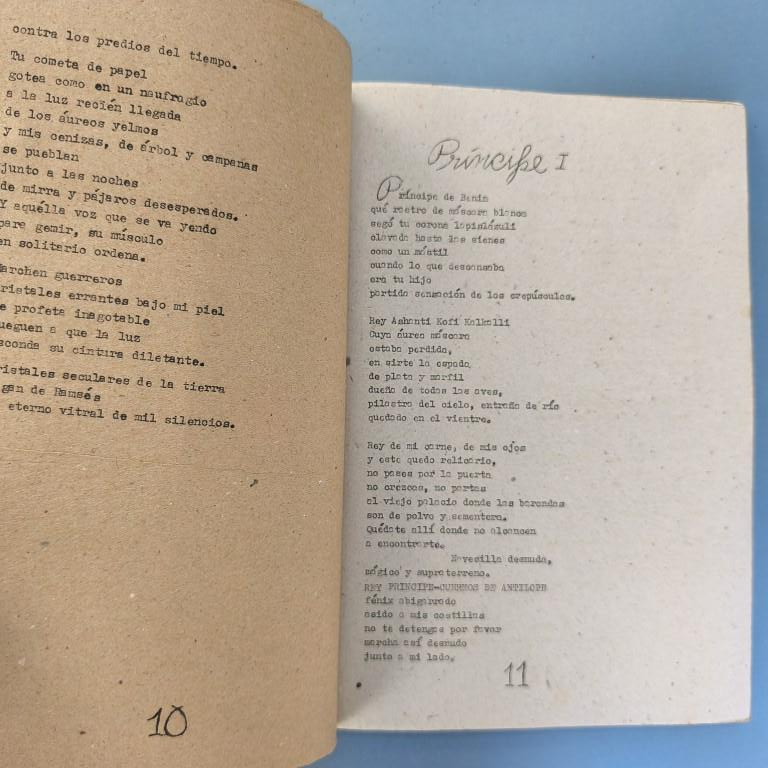 contra los predios del tiempo.
Tu cometa de papel
gotea como en un naufragio
a la luz recién llegada
de los áureos yelmos
y mis cenizas, de árbol y campanas
se pueblan
junto a las noches
de mirra y pájaros desesperados.
Y aquélla voz que se va yendo
pare gemir, su músculo
en solitario ordena.
archen guerreros
ristales errantes bajo mi piel
e profeta inagotable
ueguen a que la luz
sconda su cintura diletante.
ristales seculares de la tierra
gan de Ramsés
eterno vitral de mil silencios.
10
Príncipe I
Príncipe de Benin
qué rostro de máscara blanca
segó tu corona lapislázuli
clavada hasta las sienes
como un mástil
cuando lo que descansaba
era tu hijo
partida sensación de los crepúsculos.
Rey Ashanti Kofi Kalkalli
Cuya áurea máscara
estaba perdida,
en sirte la espada
de plata y marfil
dueño de todas las aves,
pilastra del cielo, entraña de río
quedado en el vientre.
Rey de mi carne, de mis ojos
y este quedo relicario,
no pases por la puerta
no crezcas, no partas
al viejo palacio donde las barandas
son de polvo y sementera.
Quédate allí donde no alcancen
a encontrarte.
Navecilla desnuda,
mágico y supraterreno.
REY PRINCIPE-CUERNOS DE ANTILOPE
fénix abigarrado
asido a mis costillas
no te detengas por favor
marcha así desnudo
junto a mi lado.
11